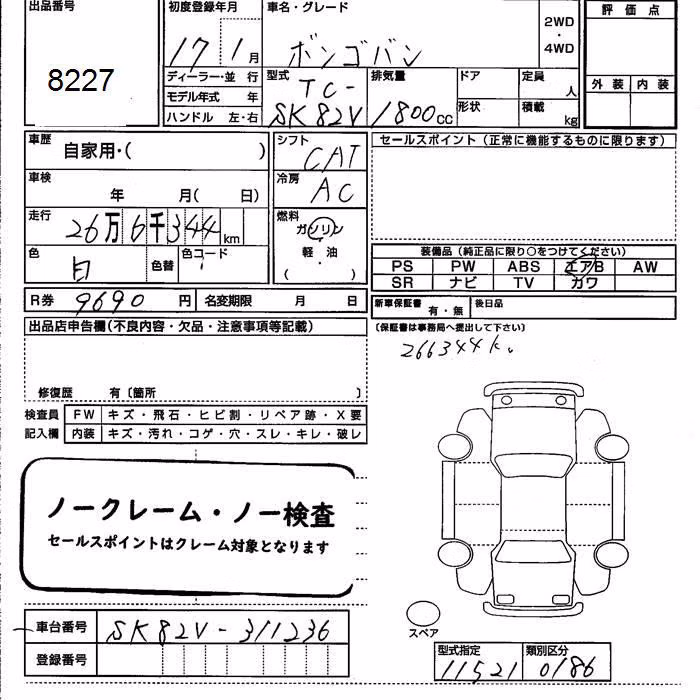 出品番号
8227
初度登録年月
17年1月
車名・グレード
ボンゴバン
2WD
・
4WD
評価点
外装 内装
ディーラー・並 行
モデル年式 年
ハンドル 左・右
型式
TC-
SK82V
排気量
1800cc
ドア
形状
定員 人
積載 kg
車歴 自家用・( )
シフト
CAT
セールスポイント(正常に機能するものに限ります)
車検 年 月( 日)
冷房
AC
走行 26万6千344km
燃料
ガソリン
軽・油
( ・ )
色 白 色替 色コード
装備品(純正品に限り○をつけてください)
PS PW ABS エアB AW
SR ナビ TV カワ
R券 9690円 名変期限 月 日
新車保証書 有・無 後日品
(保証書は事務局へ提出して下さい)
266344k.
出品店申告欄(不良内容・欠品・注意事項等記載)
修復歴 有〔箇所 〕
検査員 FW キズ・飛石・ヒビ割・リペア跡・X要
記入欄 内装 キズ・汚れ・コゲ・穴・スレ・キレ・破レ
ノークレーム・ノー検査
セールスポイントはクレーム対象となります
車台番号 SK82V-311236
登録番号
スペア
型式指定 類別区分
11521 0186